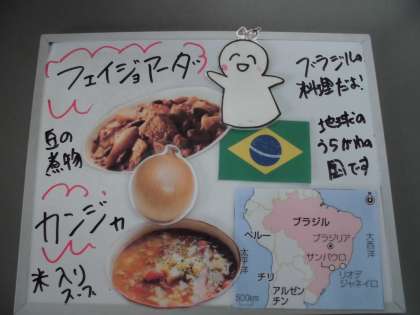 フェイジョアーダ
豆の
煮物
カンジャ
米入り
スープ
ブラジルの
料理だよ!
地球の
うらがわの
国です
ブラジル
ペルー
ブラジリア
サンパウロ
リオデ
ジャネイロ
チリ
アルゼン
チン
太平洋
大西洋
500km